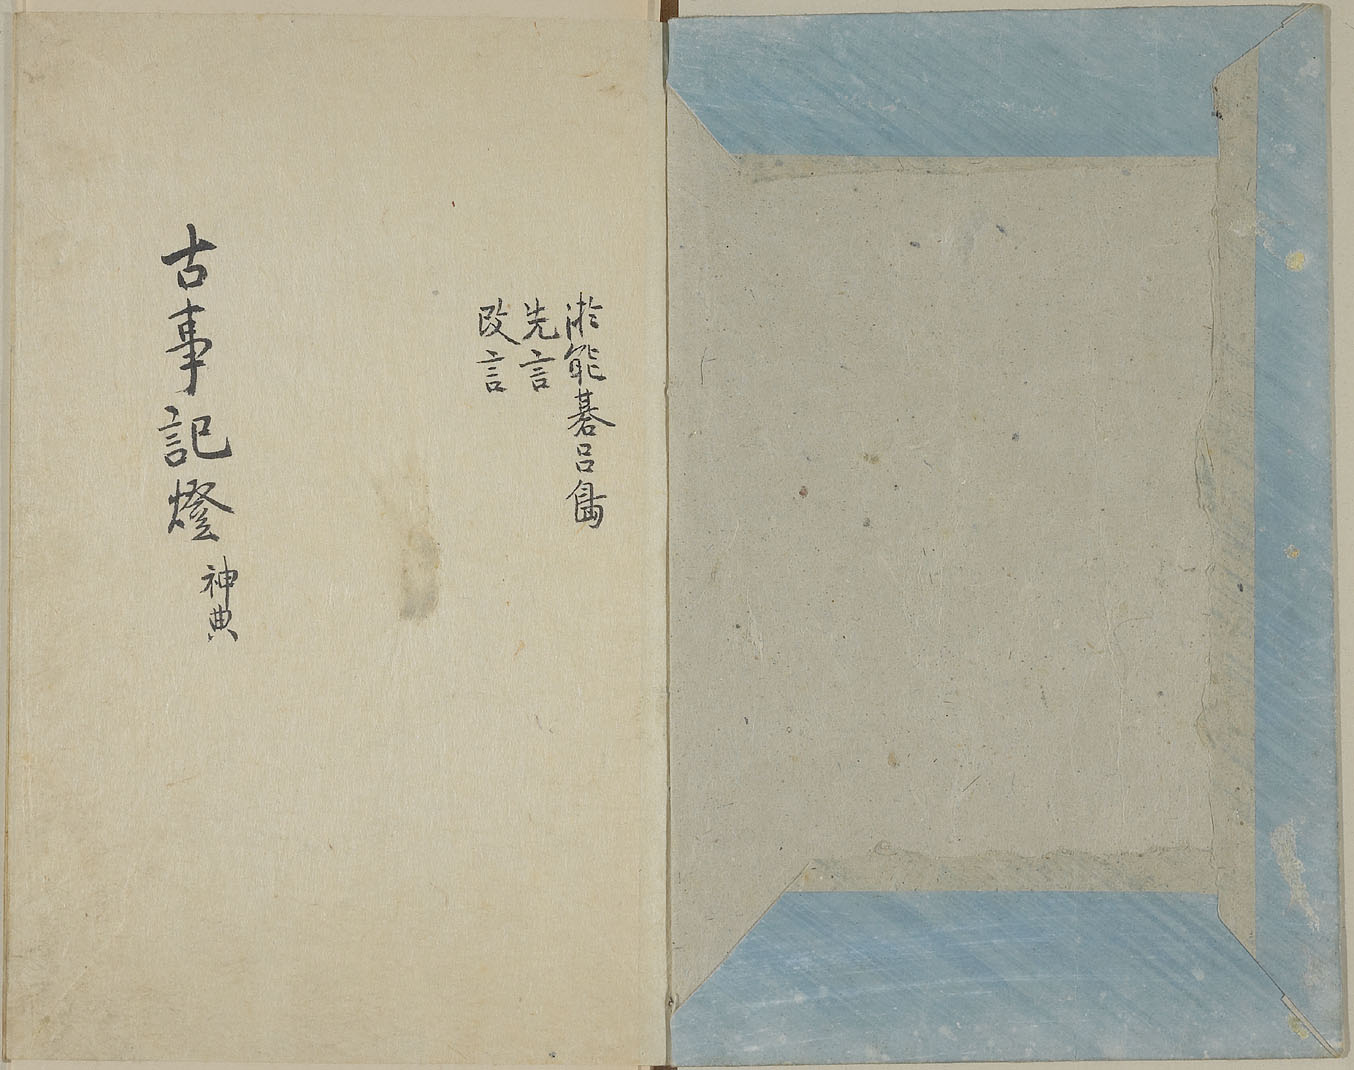 淤能碁呂嶌
先言
改言
古事記燈 神典